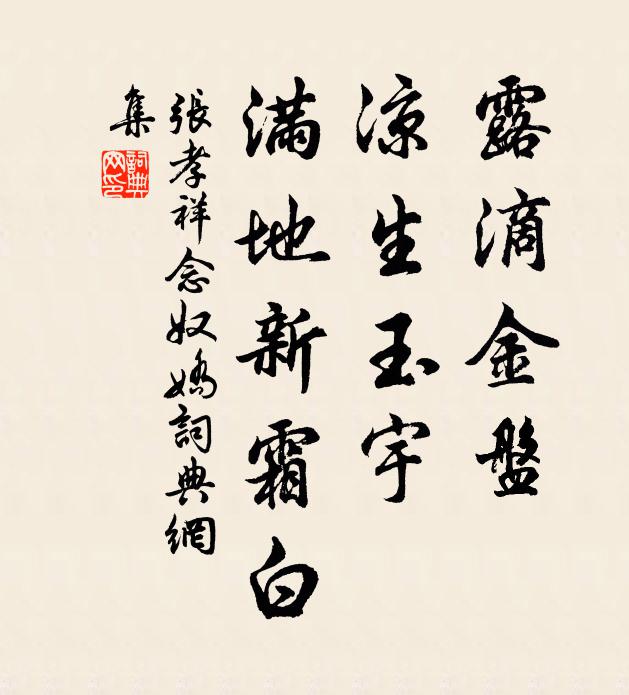 露滴金盤
凉生玉宇
滿地新霜白
張孝祥念奴嬌詞典網
集
詞典
网印